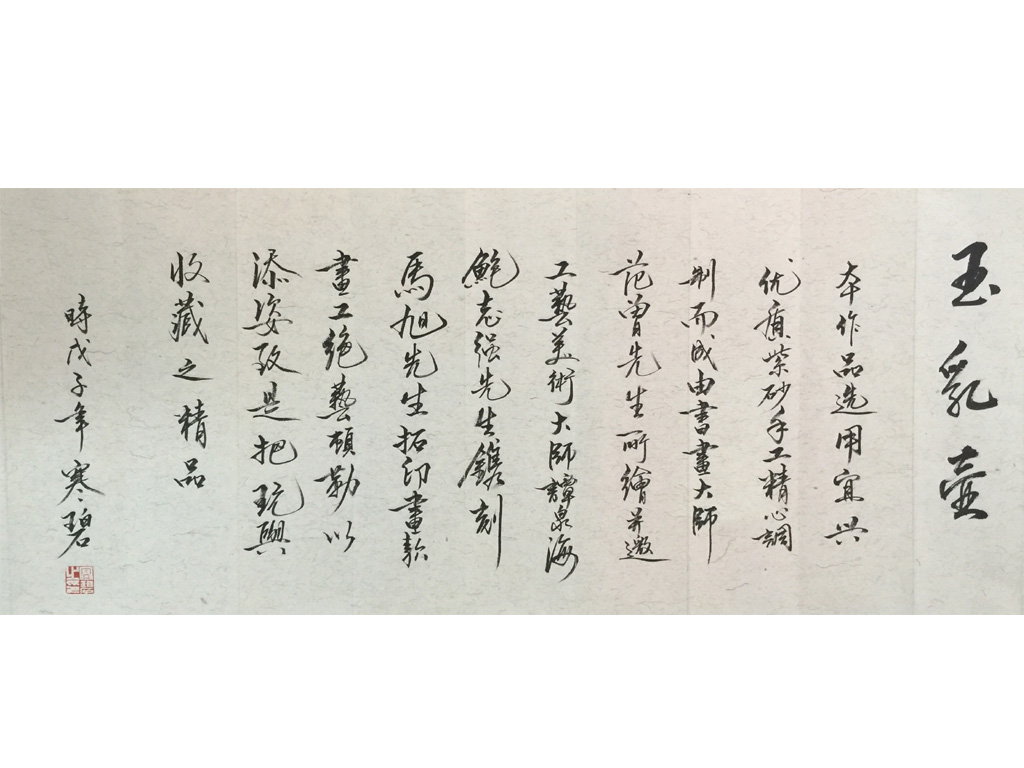 玉乳壶
本作品选用宜兴
优质紫砂手工精心調
制而成由書畫大師
范曾先生所繪并邀
工藝美術大師譚泉海
鲍志强先生鐫刻
馬旭先生拓印書款
畫工绝藝頓勒以
添姿致是把玩與
收藏之精品
時戊子年寒碧